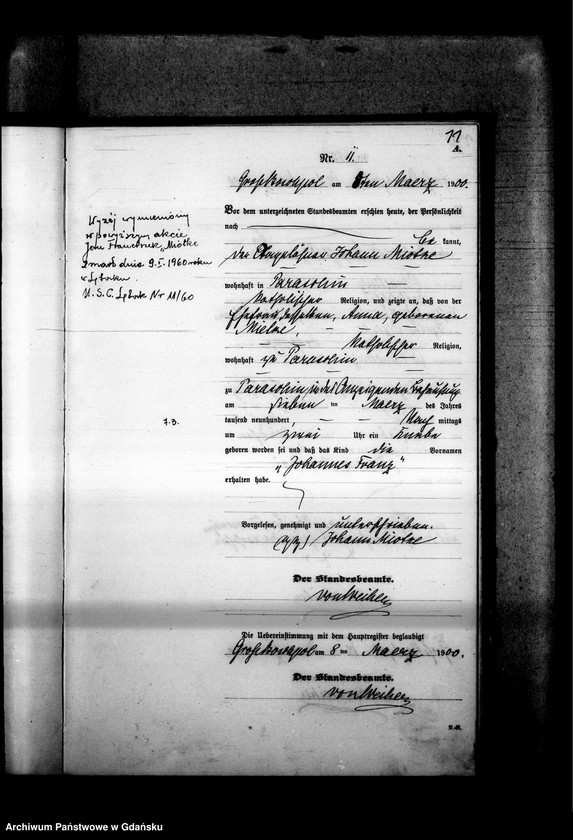 11
A.
Nr. 11.
am 8ten Maerz 1900.
Wyżej wymieniony
w powyższym akcie
Jan Franciszek Miotke
zmarł dnia 9.I.1960 roku
w Lęborku.
U.S.C. Lębork Nr 11/60
Vor dem unterzeichneten Standesbeamten erschien heute, der Persönlichkeit
nach
be kannt,
der Johann Miotke
wohnhaft in Parasolin
katholischer Religion, und zeigte an, daß von der
Ehefrau desselben, Anna, geborenen
Mielke,
katholischer Religion,
wohnhaft zu Parasolin
zu Parasolin in des Anzeigenden Behausung
am sieben ten Maerz des Jahres
tausend neunhundert, Nach mittags
7.3.
um zwei Uhr ein Knabe
geboren worden sei und daß das Kind die Vornamen
"Johannes Franz"
erhalten habe.
Vorgelesen, genehmigt und unterschrieben.
(gez) Johann Miotke
Der Standesbeamte.
von Weiher
Die Uebereinstimmung mit dem Hauptregister beglaubigt
am 8 ten Maerz 1900.
Der Standesbeamte.
von Weiher
Archiwum Państwowe w Gdańsku